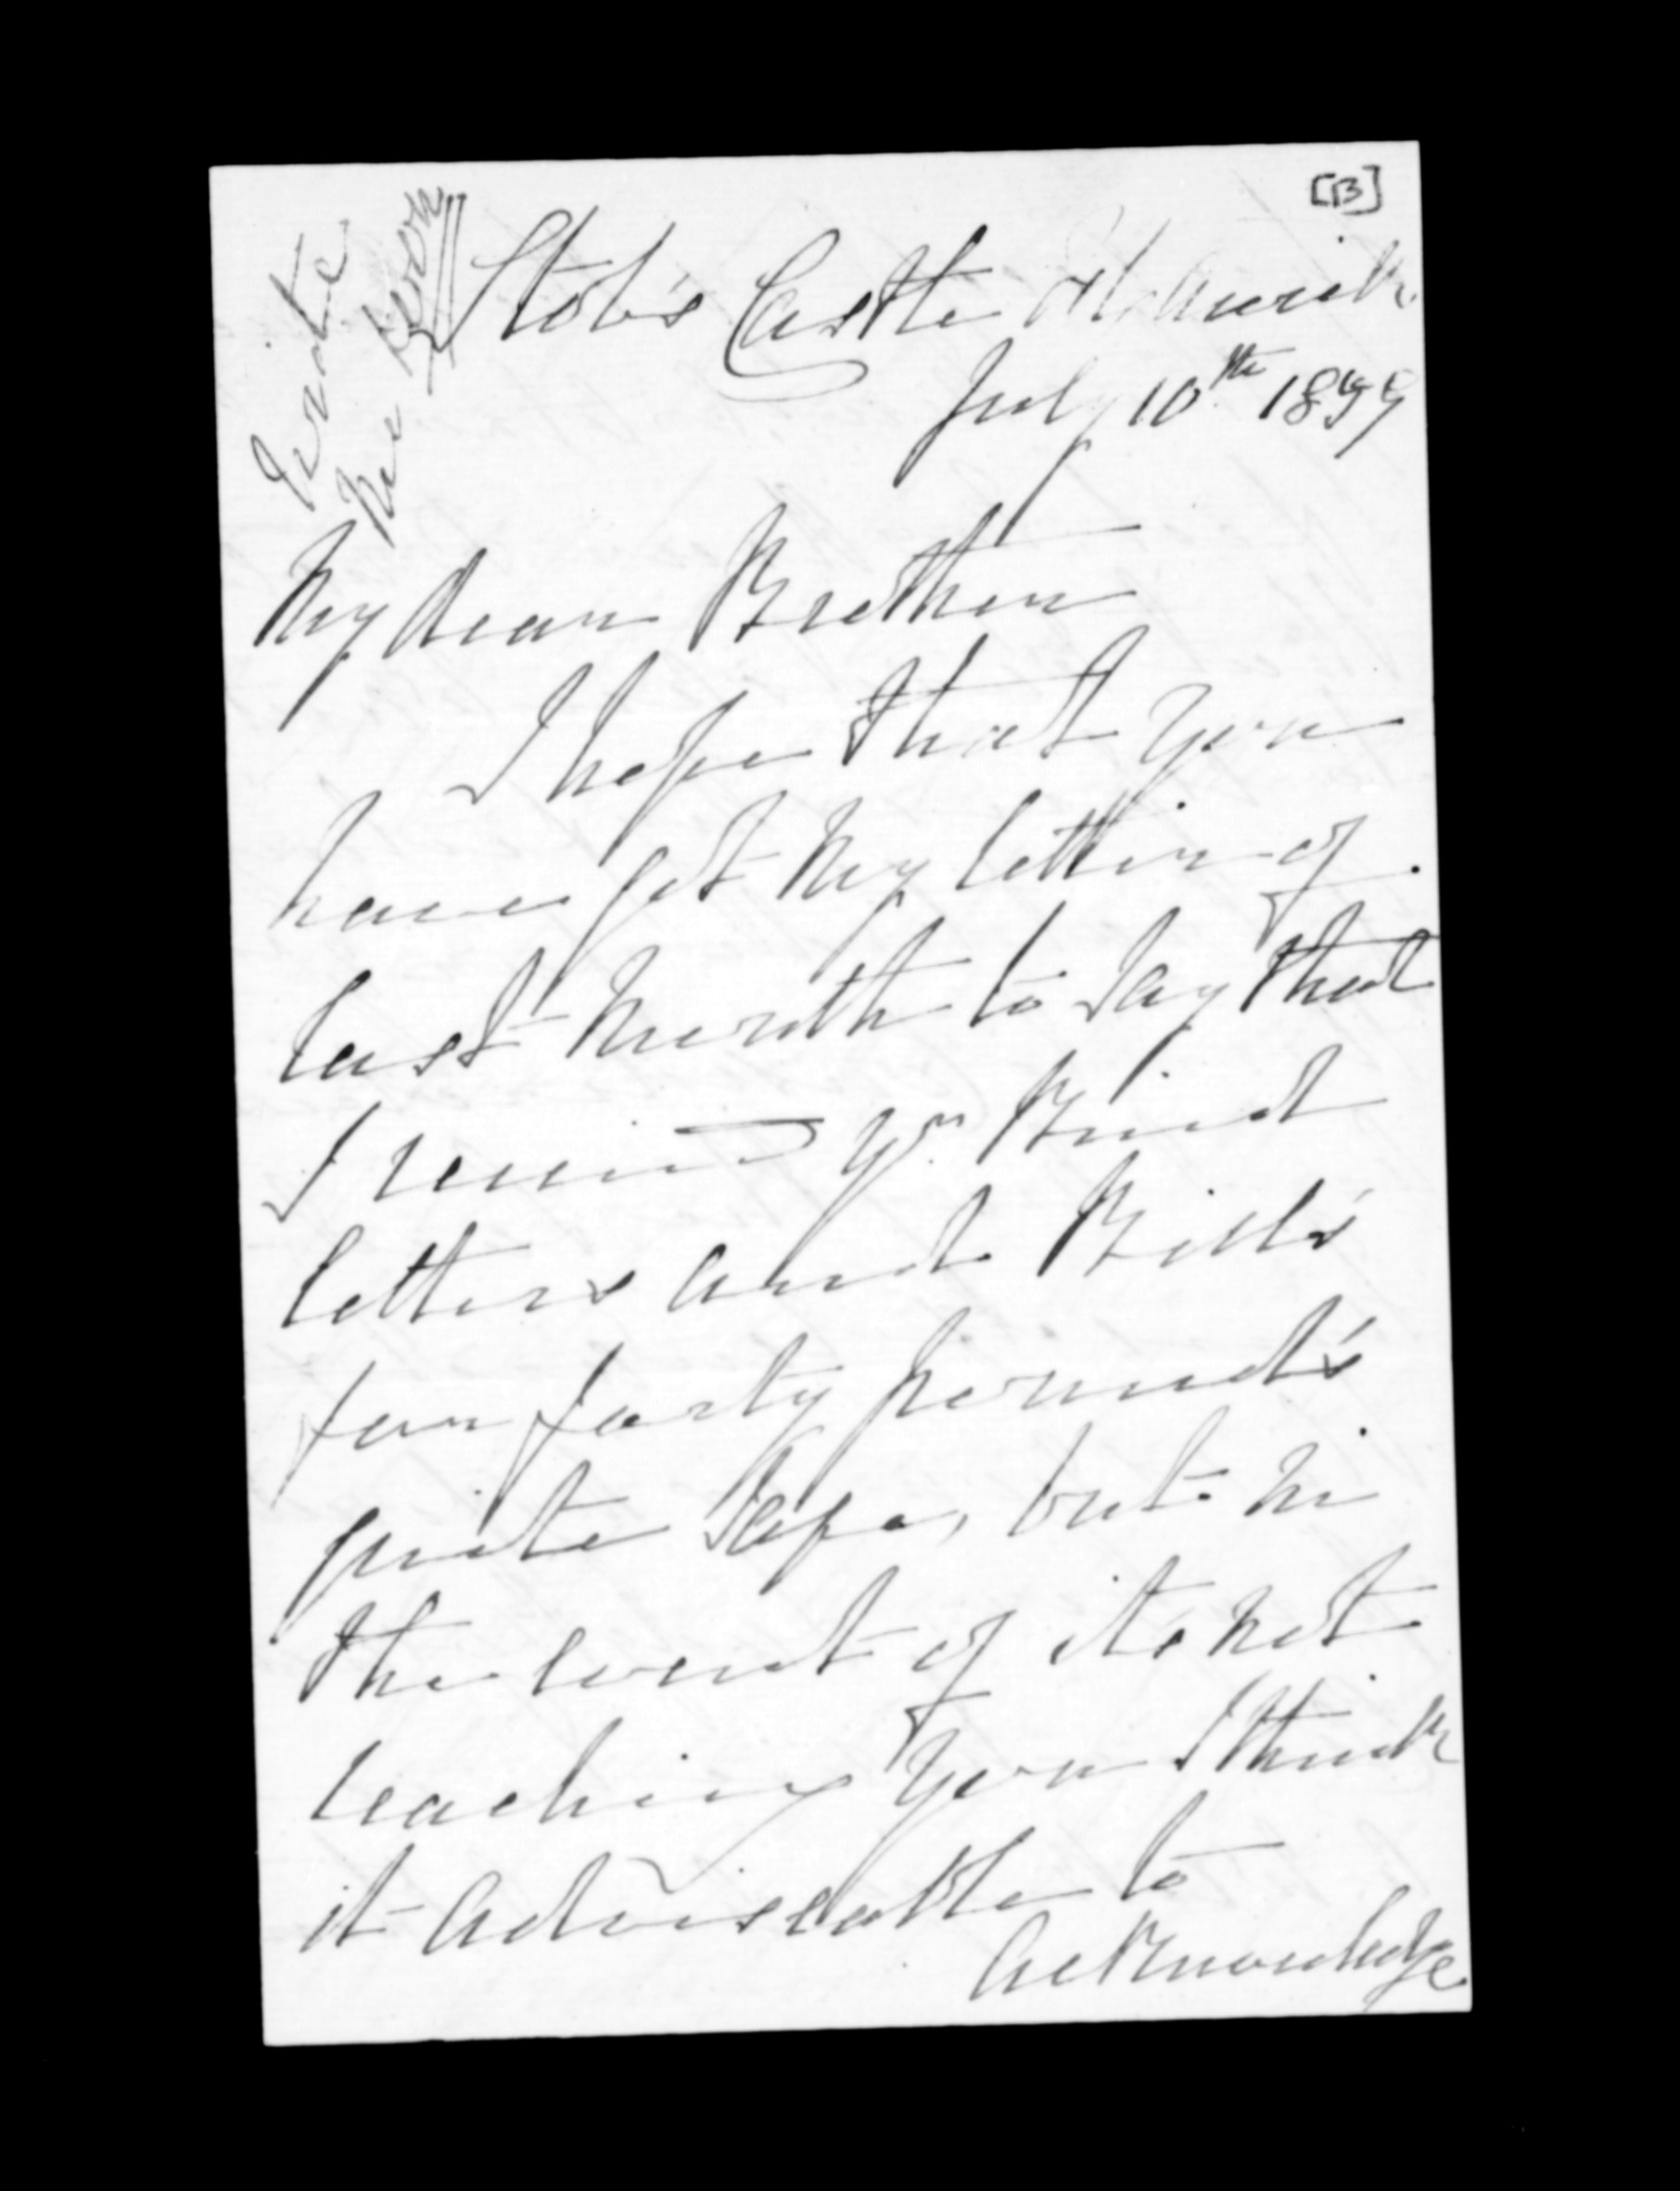 [B]
write
me soon
Stob's Castle Hawick
July 10th 1899
My dear Brother
I hope that you
have got my letter of
last month to say that
I received yr. kind
letters and Bill's
for forty pound's
quite safe, but in
the event of its not
reaching you I think
it adviseable to
acknowledge